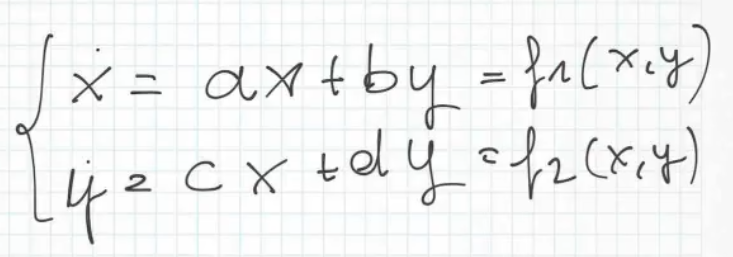 ẋ = ax + by = f₁(x,y)
ẏ = cx + dy = f₂(x,y)